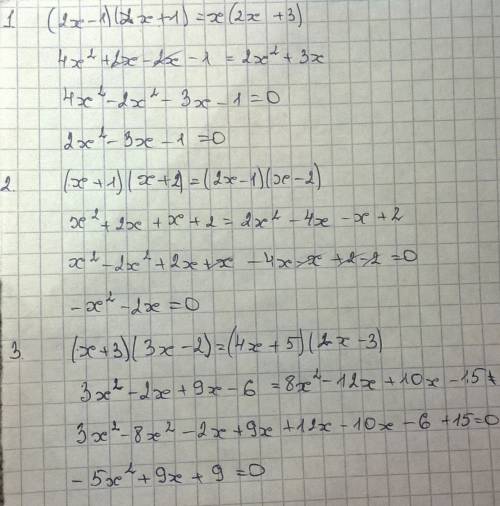 1. (2x-1)(2x+1)=x(2x+3)
4x²+2x-2x-1=2x²+3x
4x²-2x²-3x-1=0
2x²-3x-1=0
2. (x+1)(x+2)=(2x-1)(x-2)
x²+2x+x+2=2x²-4x-x+2
x²-2x²+2x+x-4x-x+2-2=0
-x²-2x=0
3. (x+3)(3x-2)=(4x+5)(2x-3)
3x²-2x+9x-6=8x²-12x+10x-15
3x²-8x²-2x+9x+12x-10x-6+15=0
-5x²+9x+9=0